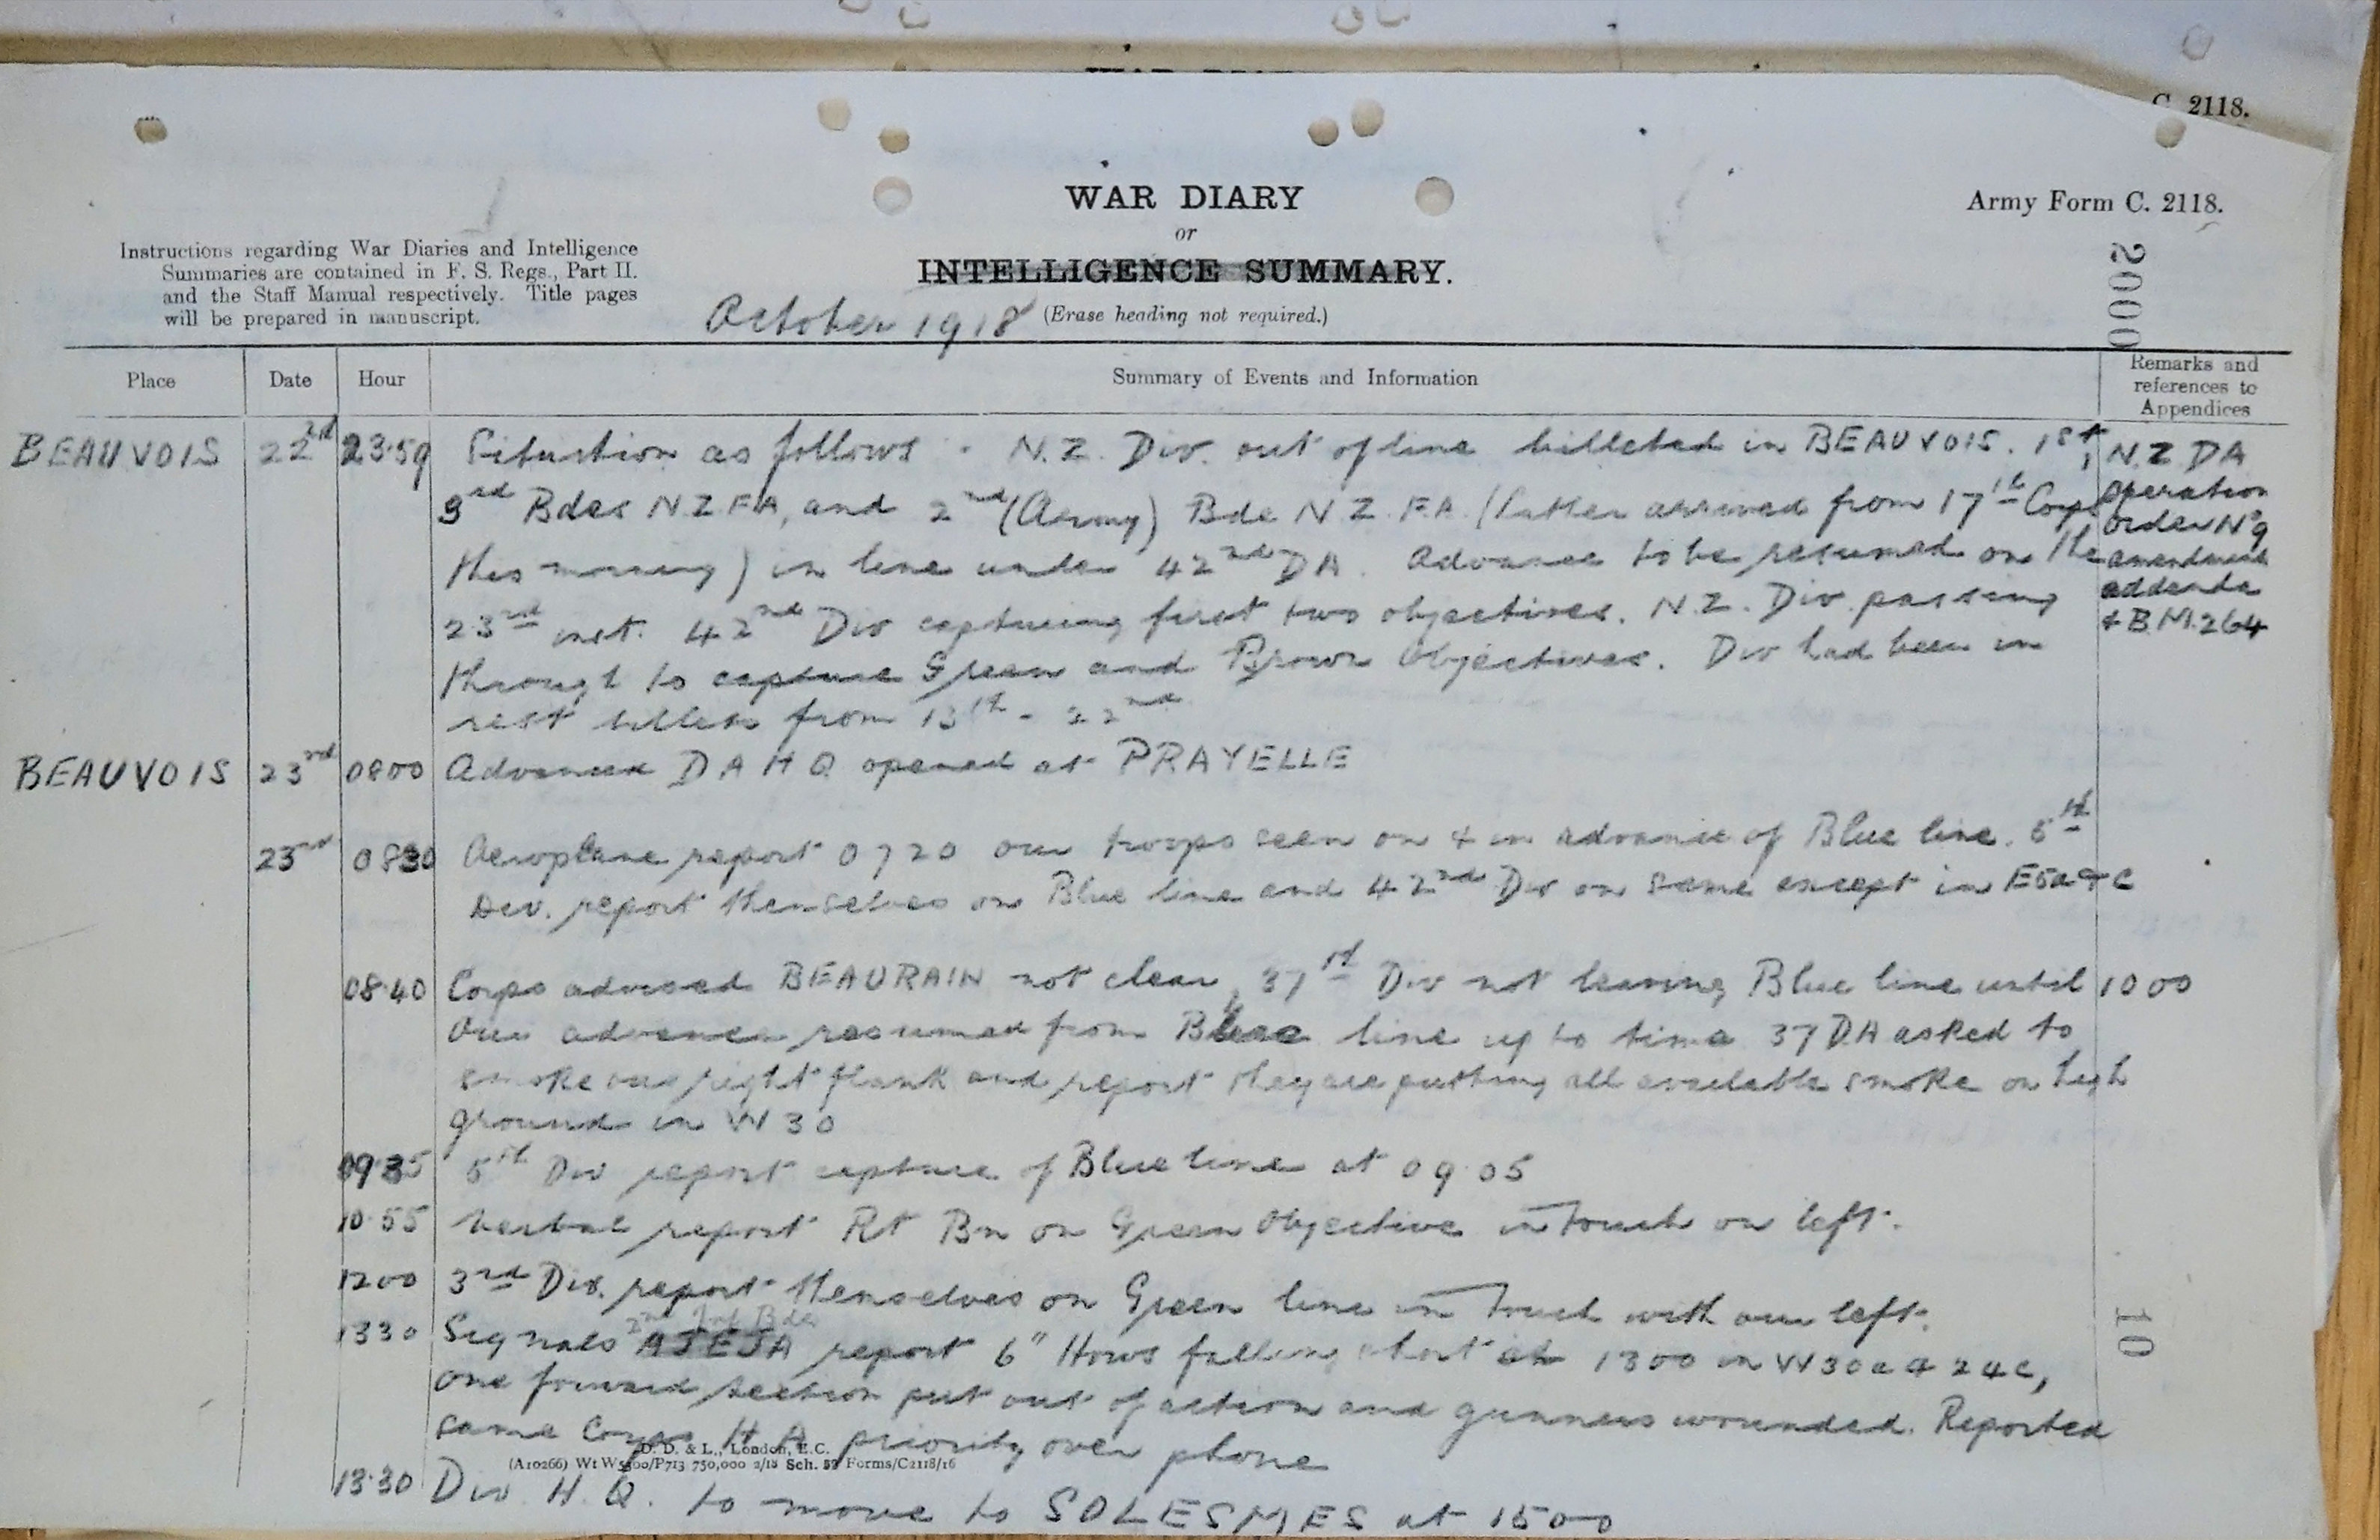 C. 2118.
WAR DIARY
or
INTELLIGENCE SUMMARY.
(Erase heading not required.)
Army Form C. 2118.
Instructions regarding War Diaries and Intelligence
Summaries are contained in F. S. Regs., Part II.
and the Staff Manual respectively. Title pages
will be prepared in manuscript.
October 1918
2000
Place Date Hour Summary of Events and Information Remarks and references to Appendices
BEAUVOIS 22nd 23.59 Situation as follows - N.Z. Div. out of line billeted in BEAUVOIS. 1st,
3rd Bdes NZFA, and 2nd (Army) Bde N.Z.F.A. (latter arrived from 17th Corps
this morning) in line under 42nd DA. Advance to be resumed on the
23rd inst. 42nd Div capturing first two objectives. N.Z. Div. passing
through to capture Green and Brown Objectives. Div had been in
rest billets from 13th - 22nd
N.Z DA
operation
order No 9
amendment
addenda
& B.M.264
BEAUVOIS 23rd 0800 Advanced D A H Q opened at PRAYELLE
23rd 0830 Aeroplane report 0720 our troops seen on & in advance of Blue line. 5th
Div. report themselves on Blue line and 42nd Div on same except in E5a & c
08.40 Corps advised BEAURAIN not clear, 37th Div not leaving Blue line until 1000
Our advance resumed from Blue line up to time 37 DA asked to
smoke our right flank and report they are putting all available smoke on high
ground in W 30
09.35 5th Div report capture of Blue line at 09.05
10.55 Verbal report Rt Bn on Green Objective in touch on left.
1200 3rd Div. report themselves on Green line in touch with our left.
2nd Inf Bde
1330 Signals AJEJA report 6" Hows falling short at 1300 in W30a & 24c,
one forward section put out of action and gunners wounded. Reported
same Corps H A priority over phone
D. D. & L., London, E.C.
(A10266) Wt W5300/P713 750,000 2/18 Sch. 52 Forms/C2118/16
13.30 Div. H. Q. to move to SOLESMES at 1500
10